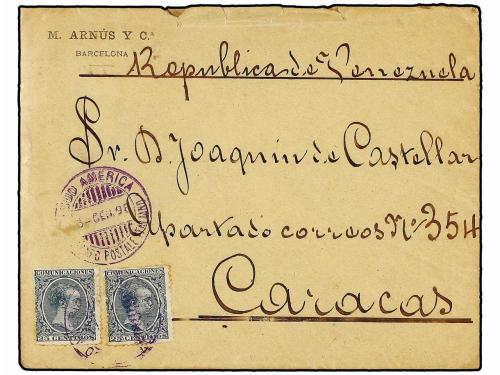 M. ARNÚS Y C.ª
BARCELONA
Republica de Venezuela
Sr. D. Joaquin de Castellar
Apartado correos Nº 354
AMERICA
GEN
POSTALE
Caracas
COMUNICACIONES COMUNICACIONES
25 CENTIMOS 25 CENTIMOS